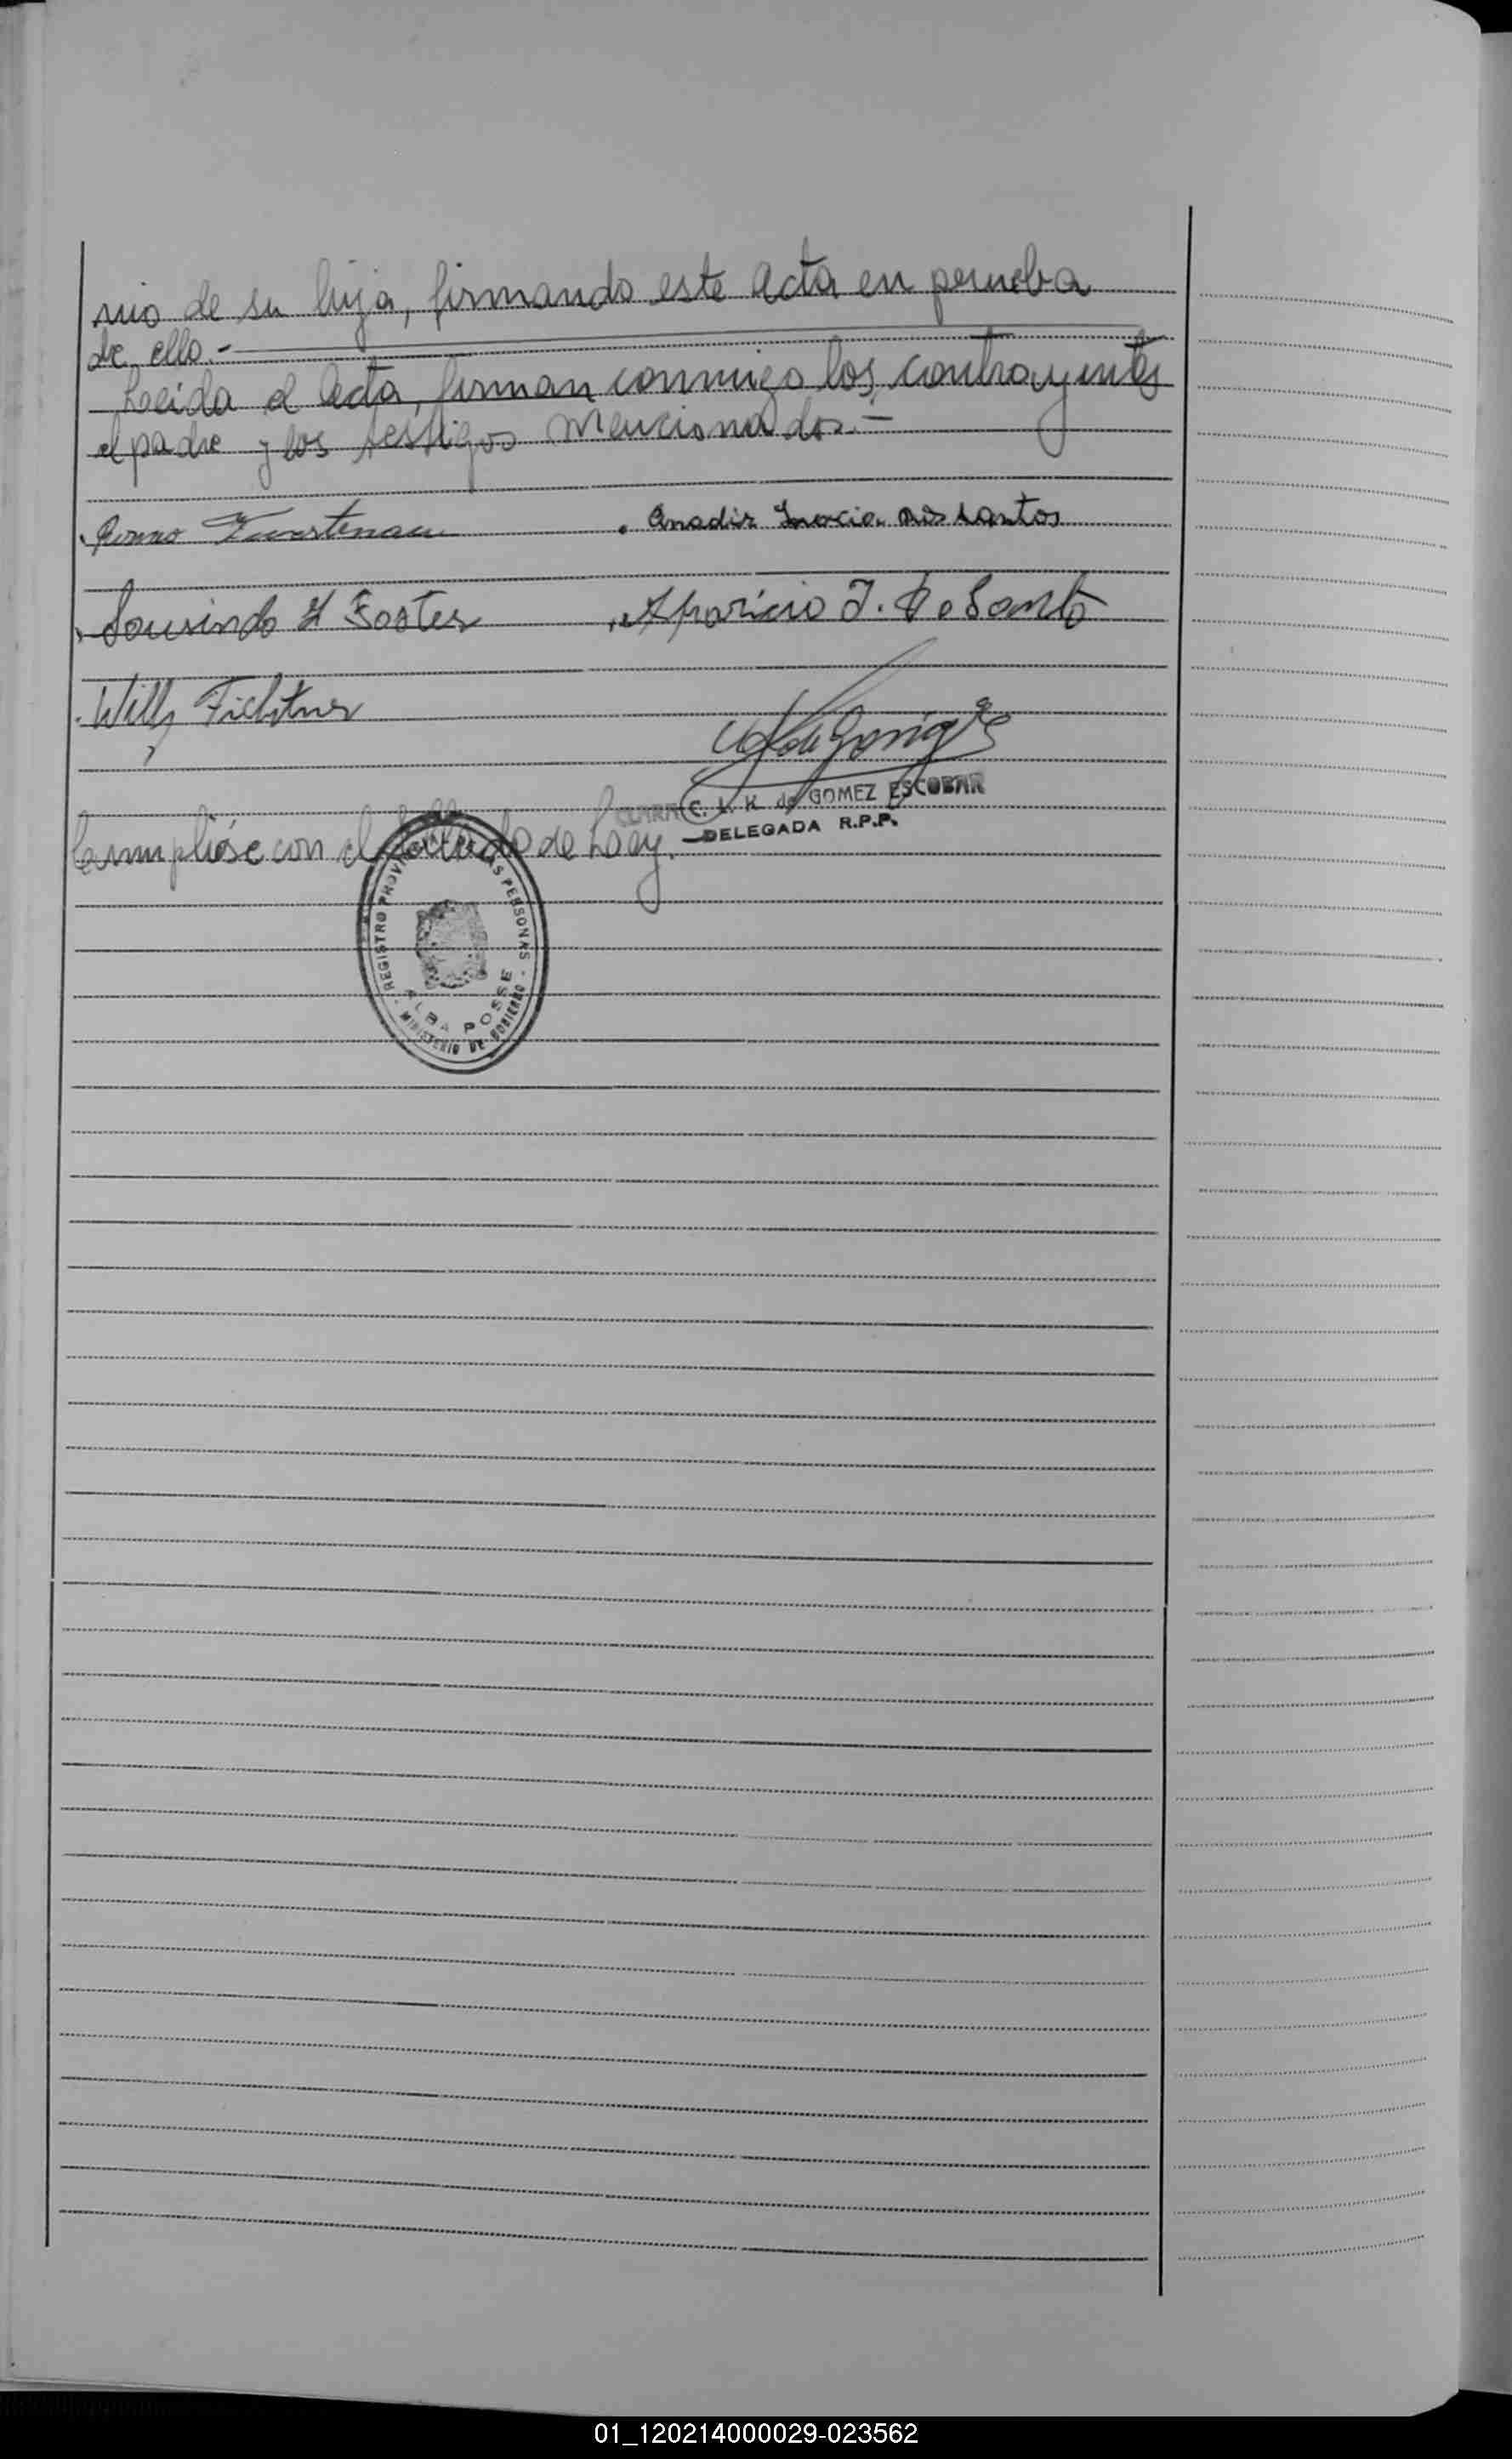 nio de su hija, firmando este acta en prueba
de ello.-
Leida el Acta, firman conmigo los contrayentes
el padre y los testigos mencionados.-
Fuerstenau
Anadir Inacio dos Santos
H Foster
Aparicio I. Do Santo
Willy Fichtner
CLARA C. L. K. de GOMEZ ESCOBAR
DELEGADA R.P.P.
Cumplióse con el Sellado de Ley.
REGISTRO PROVINCIAL DE LAS PERSONAS
ALBA POSSE
MINISTERIO DE GOBIERNO
01_120214000029-023562